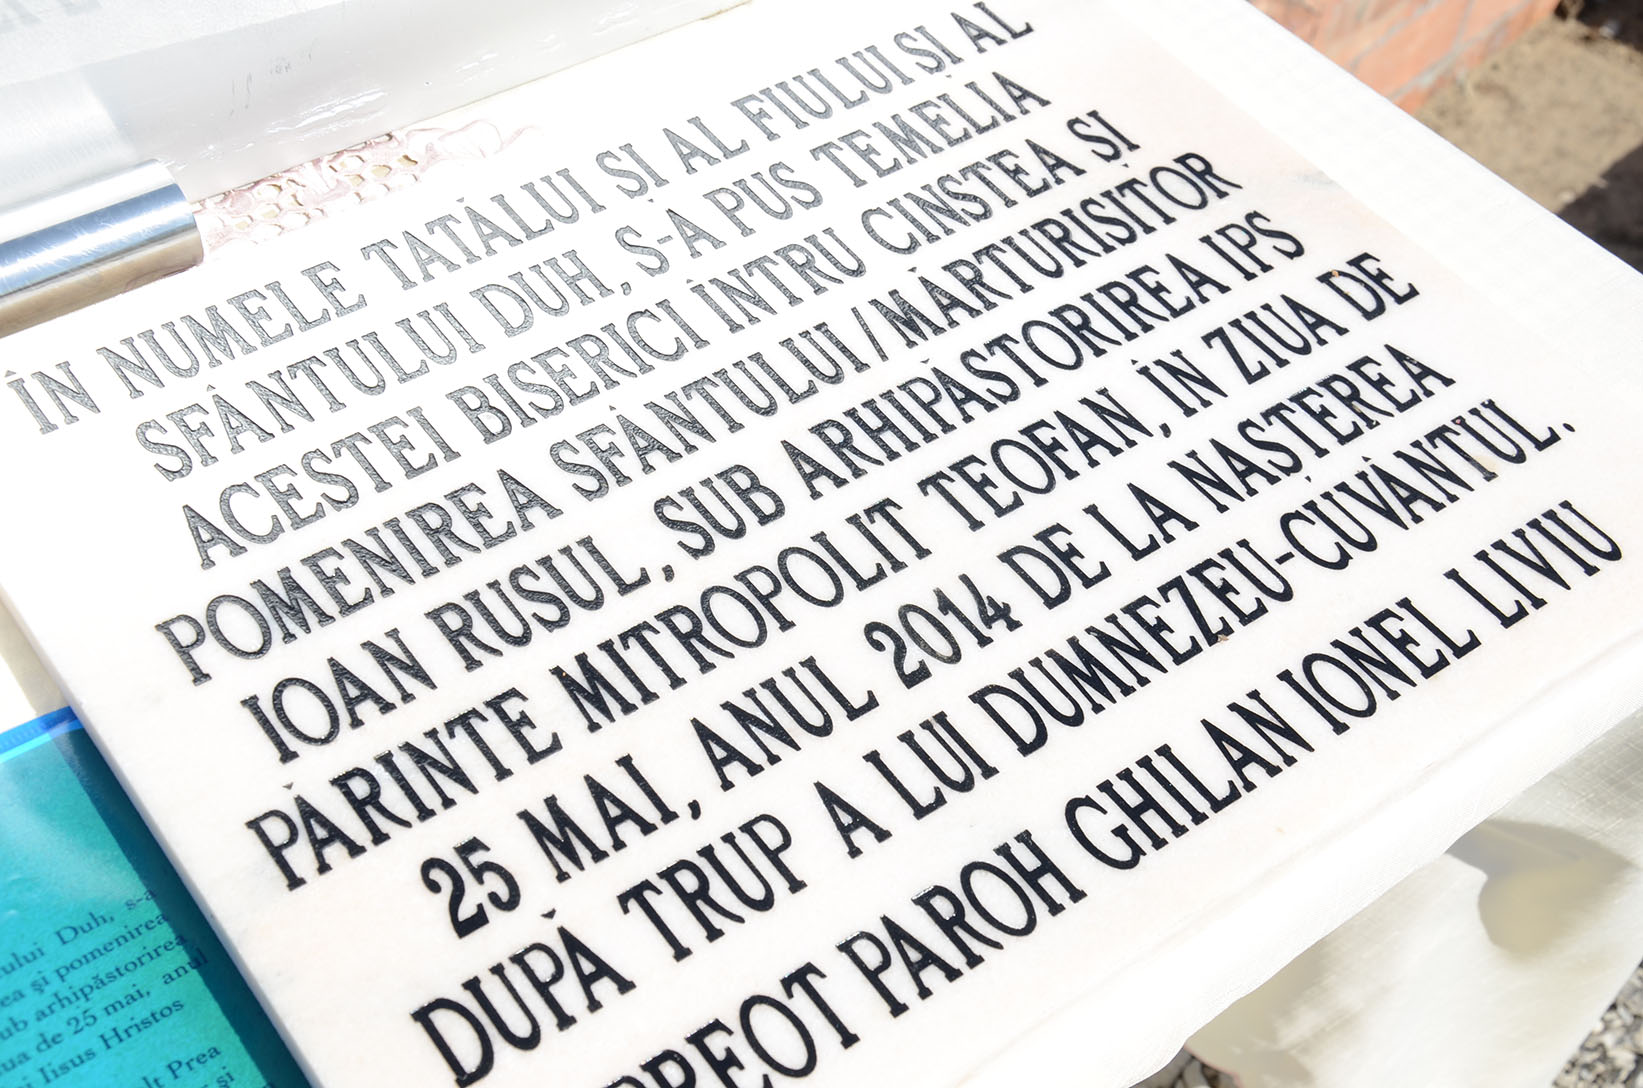 ÎN NUMELE TATĂLUI ȘI AL FIULUI ȘI AL
SFÂNTULUI DUH, S-A PUS TEMELIA
ACESTEI BISERICI ÎNTRU CINSTEA ȘI
POMENIREA SFÂNTULUI / MĂRTURISITOR
IOAN RUSUL, SUB ARHIPĂSTORIREA IPS
PĂRINTE MITROPOLIT TEOFAN, ÎN ZIUA DE
25 MAI, ANUL 2014 DE LA NAȘTEREA
DUPĂ TRUP A LUI DUMNEZEU-CUVÂNTUL.
PREOT PAROH GHILAN IONEL LIVIU
Duh, s-a
și pomenirea
arhipăstorirea
de 25 mai, anul
Iisus Hristos
Prea
și